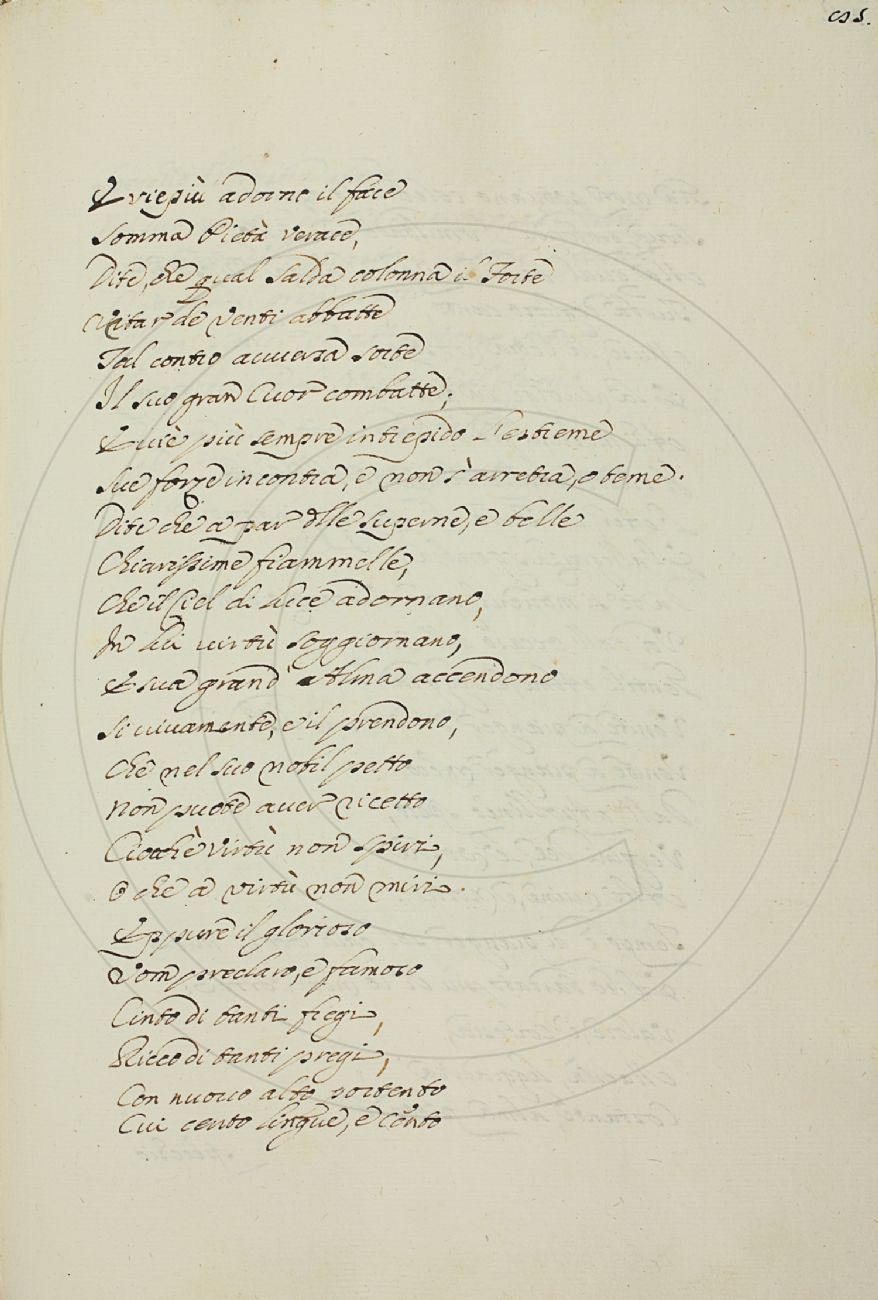 E viepiù adorno il face
Somma Pietà verace,
Dite, che qual salda colonna il Forte
Urtar de venti abbatte
Tal contro avversa sorte
Il suo gran Cuor combatte;
E vie più sempre intrepido l'estreme
Sue forze incontra, e non s'arretra, o teme.
Dite che a par dlle superne, e belle
Chiarissime fiammelle,
Che il Ciel di luce adornano,
In lui virtù soggiornano,
E sua grand'Alma accendono
Si vivamente, e il prendono,
Che nel suo nobil petto
Non puote aver ricetto
Ciocchè virtù non spiri,
O che a virtù non miri.
Eppure il glorioso
Vom preclaro, e famoso
Cinto di tanti fregi,
Ricco di tanti pregi,
Con nuovo alto portento
Cui cento lingue, e cento